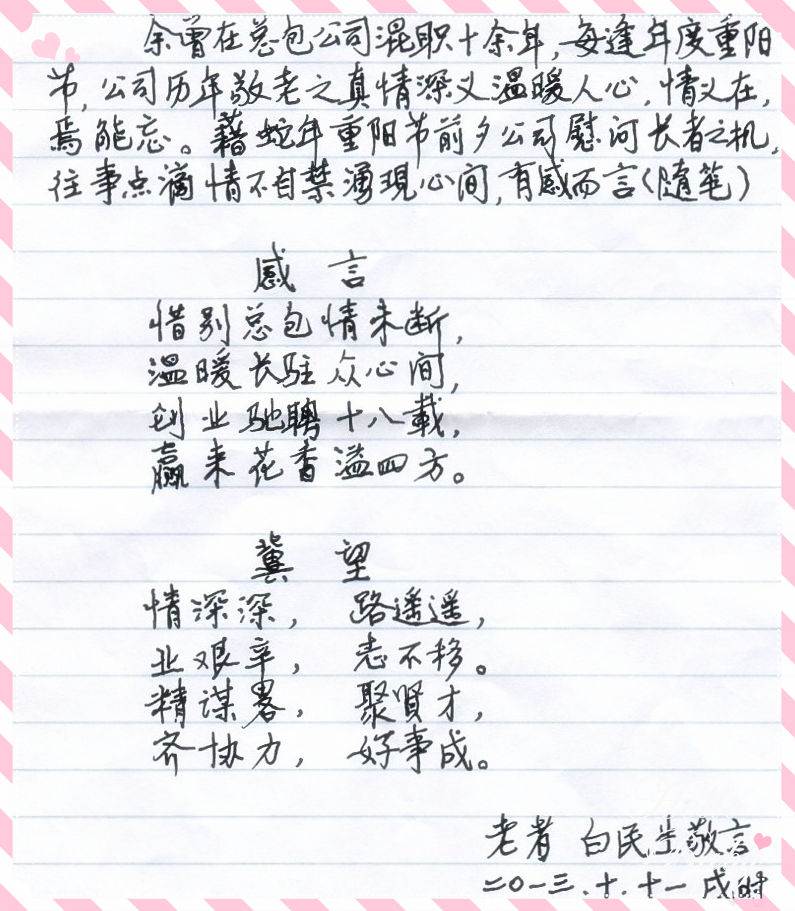 余曾在总包公司混职十余年，每逢年度重阳
节，公司历年敬老之真情深义温暖人心，情义在，
焉能忘。藉蛇年重阳节前夕公司慰问长者之机，
往事点滴情不自禁湧現心间，有感而言（随笔）
感言
惜别总包情未断，
温暖长驻众心间，
创业驰聘十八載，
赢来花香溢四方。
冀望
情深深，路遥遥，
业艰辛，志不移。
精谋畧，聚賢才，
齐协力，好事成。
老者 白民生敬言
二〇一三.十.十一 戌时